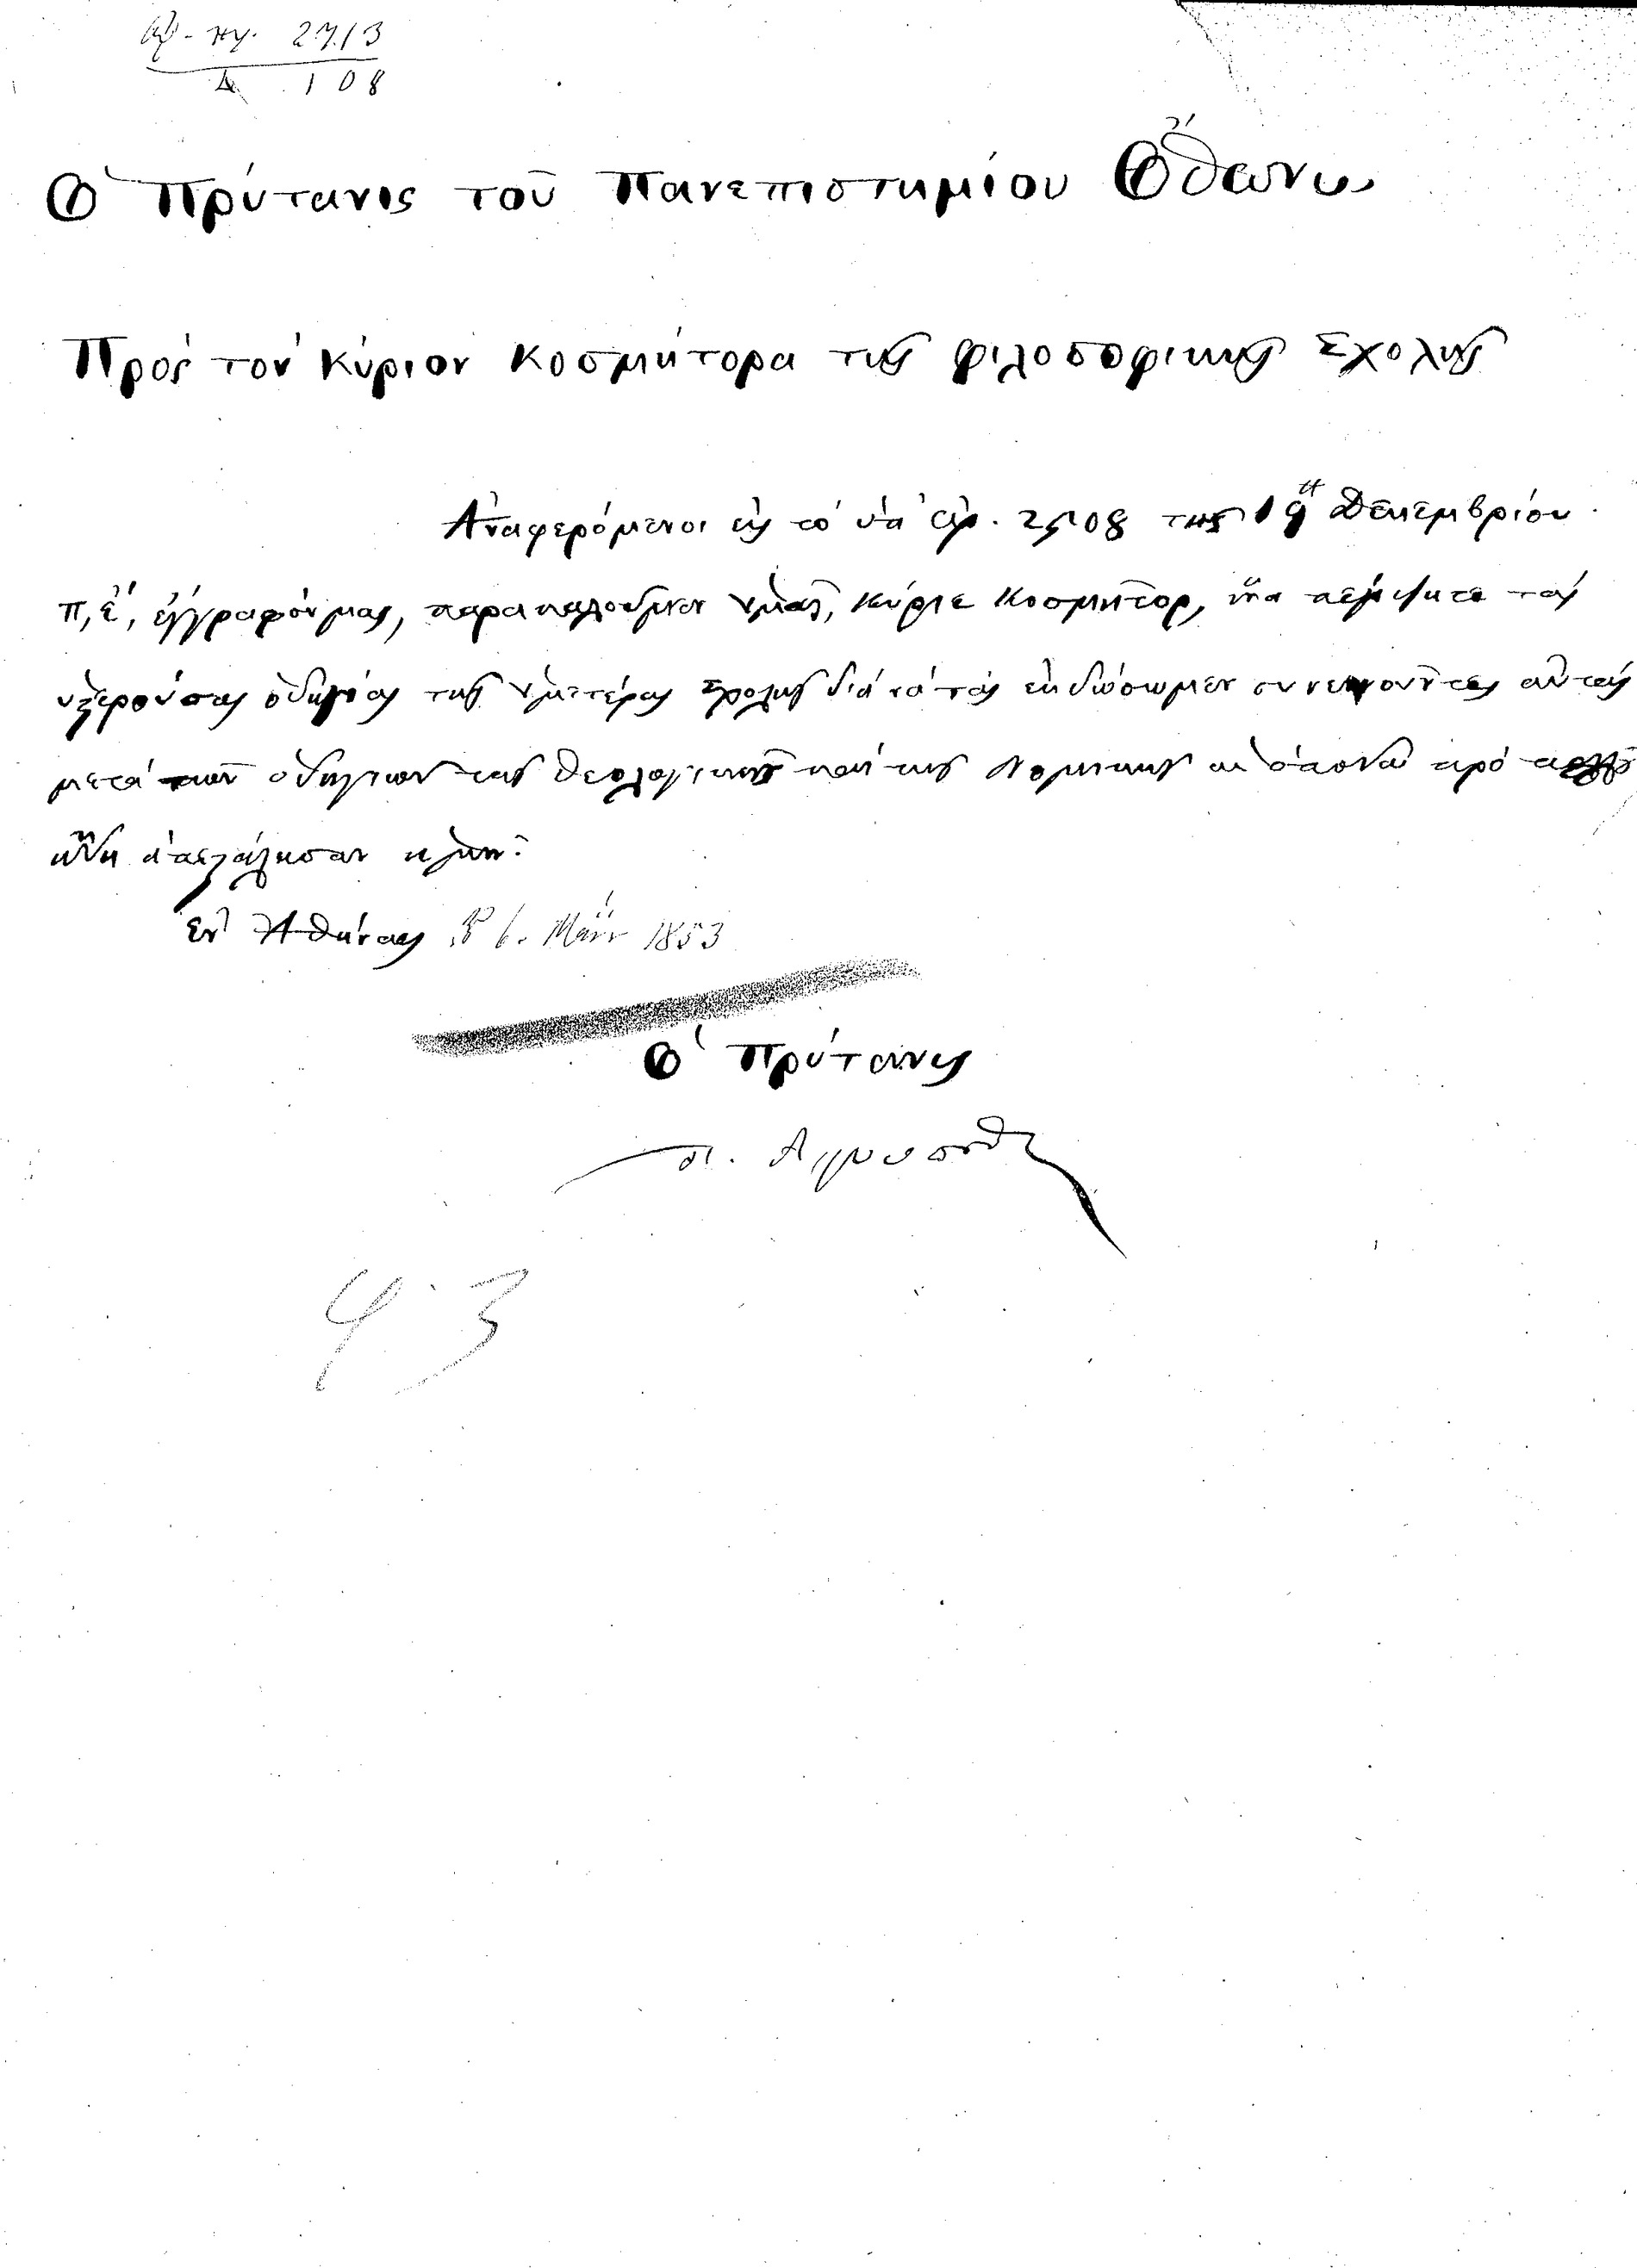 2713
Δ 108
Ὁ Πρύτανις τοῦ Πανεπιστημίου Ὄθωνος
Πρὸς τὸν Κύριον Κοσμήτορα τῆς φιλοσοφικῆς Σχολῆς
Ἀναφερόμενοι εἰς τὸ ὑπ' ἀρ. 2508 τῆς 19 Δεκεμβρίου
π, ἔ, ἔγγραφόν μας, παρακαλοῦμεν ὑμᾶς, κύριε Κοσμῆτορ, ἵνα πέμψητε τὰς
ὑστερούσας ὁδηγίας τῆς ὑμετέρας Σχολῆς διὰ νὰ τὰς ἐκδώσωμεν συνενοῦντες αὐτὰς
μετὰ τῶν ὁδηγιῶν τῆς Θεολογικῆς καὶ τῆς Νομικῆς αἱ ὁποῖαι πρὸ πολλοῦ
ἤδη ἀπεστάλησαν ἡμῖν.
Ἐν Ἀθήναις 6. Μαΐου 1853
Ὁ Πρύτανις
Π. Ἀργυρόπουλος